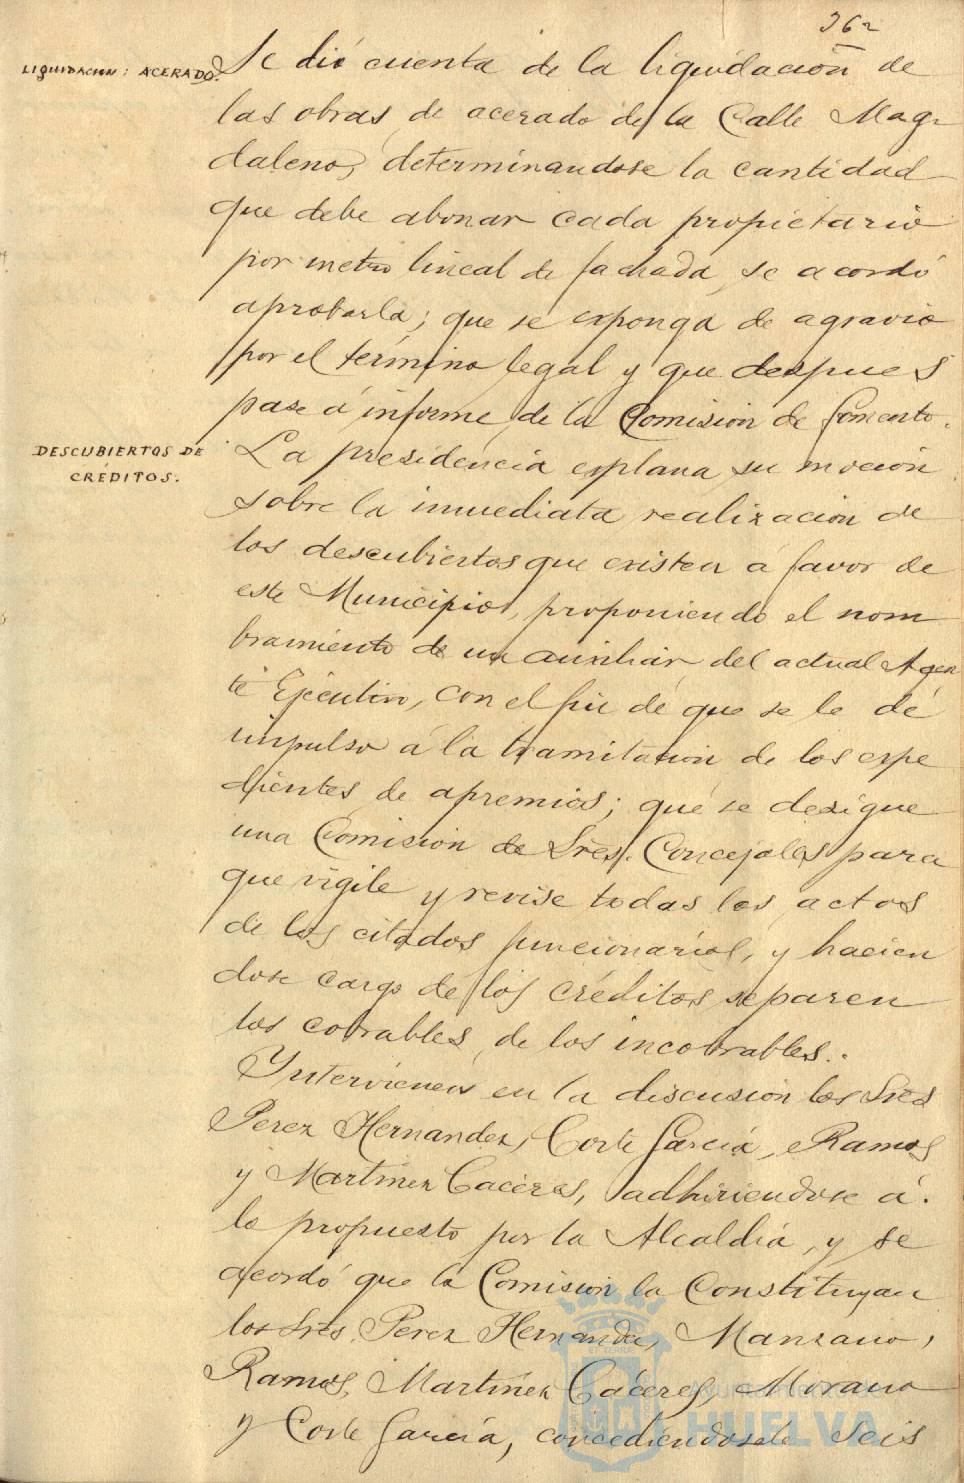 362
LIQUIDACION: ACERADO.
Se dió cuenta de la liquidación de
las obras de acerado de la Calle Mag-
daleno, determinandose la cantidad
que debe abonar cada propietario
por metro lineal de fachada, se acordó
aprobarla; que se exponga de agravio
por el término legal y que despues
pase á informe de la Comision de Fomento.
DESCUBIERTOS DE
CRÉDITOS.
La presidencia explana su moción
sobre la inmediata realizacion de
los descubiertos que existen a favor de
este Municipio, proponiendo el nom
bramiento de un auxiliar del actual Agen
te Ejecutivo, con el fin de que se le dé
impulso á la tramitacion de los expe
dientes de apremios; que se designe
una Comision de Sres. Concejales para
que vigile y revise todas los actos
de los citados funcionarios, y hacien
dose cargo de los créditos separen
los cobrables de los incobrables.
Intervienen en la discusion los Sres
Perez Hernandez, Corte Garcia, Ramos
y Martinez Caceres, adhiriendose á
lo propuesto por la Alcaldia, y se
acordó que la Comision la Constituyan
los Sres. Perez Hernandez, Manzano,
Ramos, Martínez Cáceres, Morano
y Corte García, concediendosele Seis
Ayuntamiento de
HUELVA